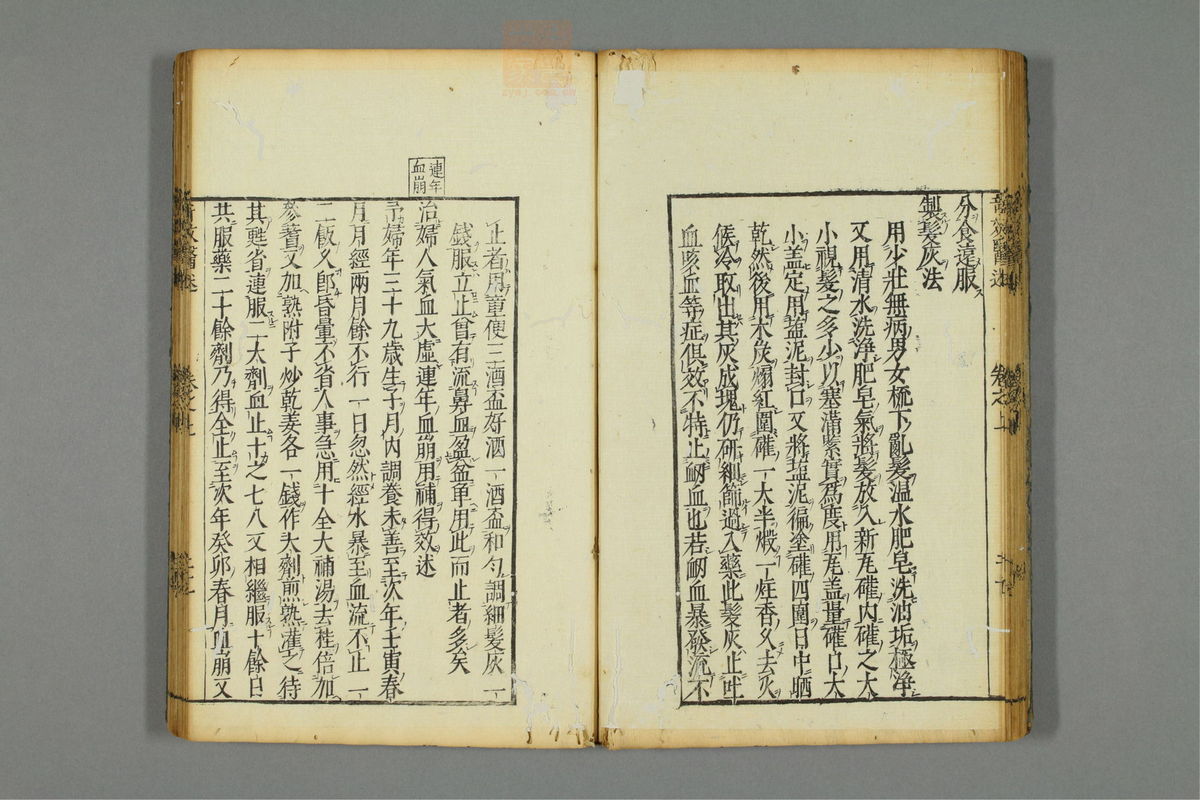 分食遠服
製髮灰法
用少壯無病男女梳下亂髮温水肥皂洗油垢極淨
又用清水洗淨肥皂氣將髮放入新瓦確内確之大
小視髮之多少以塞滿緊實爲度用瓦盖量確口大
小盖定用塩泥封口又將塩泥徧塗確四圍日中晒
乾然後用木炭煽紅圍確一大半煅一炷香久去火
候冷取出其灰成塊仍研細篩過入藥此髮灰止吐
血咳血等症俱效不特止衂血也若衂血暴發流不
止者用童便三酒盃好酒一酒盃和勻調細髮灰一
錢服立止曾有流鼻血盈盆單用此而止者多矣
連年
血崩
治婦人氣血大虛連年血崩用補得效述
予婦年三十九歲生子月内調養未善至次年壬寅春
月月經兩月餘不行一日忽然經水暴至血流不止一
二飯久卽昏暈不省人事急用十全大補湯去桂倍加
參蓍又加熟附子炒乾姜各一錢作大劑煎熟灌之待
其甦省連服二大劑血止十之七八又相繼服十餘日
共服藥二十餘劑乃得全止至次年癸卯春月血崩又